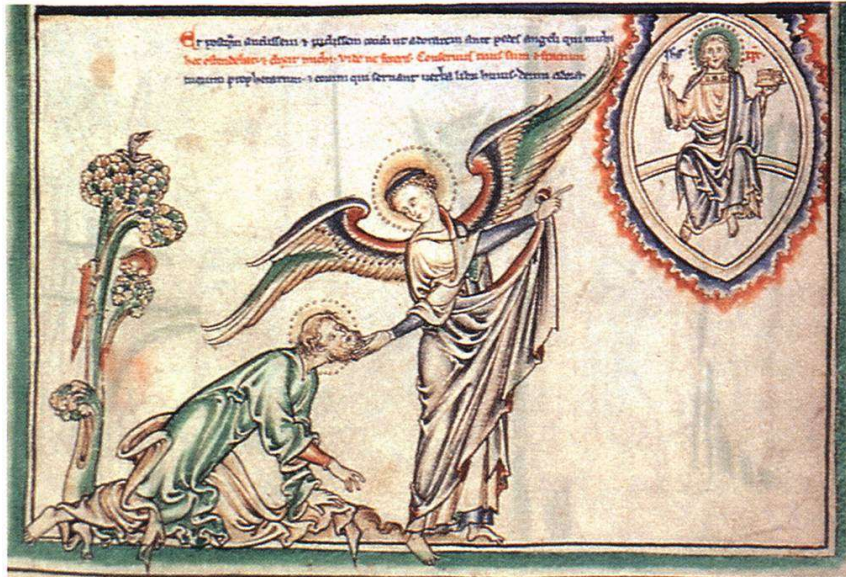 Et postq̃m audissem & uidissem cecidi ut adorarem ante pedes angeli qui michi
hec ostendebat · & dixit michi · Vide ne feceris · Conseruus tuus sum & fratrum
tuorum prophetarum · & eorum qui seruant uerba libri huius · deum adora ·